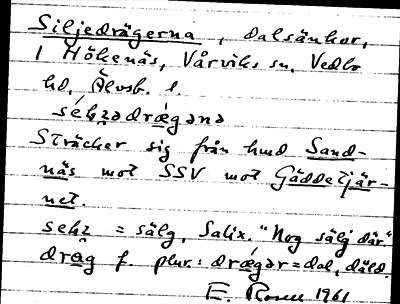 Siljedrägerna, dalsänkor,
i Hökenäs, Vårviks sn. Vedbo
hd, Älvsb. l.
séhʐədræ̀gəna
Sträcker sig från hmd Sand-
näs mot SSV mot Gäddetjär-
net.
sehʐ = sälg, Salix. "Nog sälg där".
dræg f. plur.: drægər = dal, däld.
E. Rosell 1961